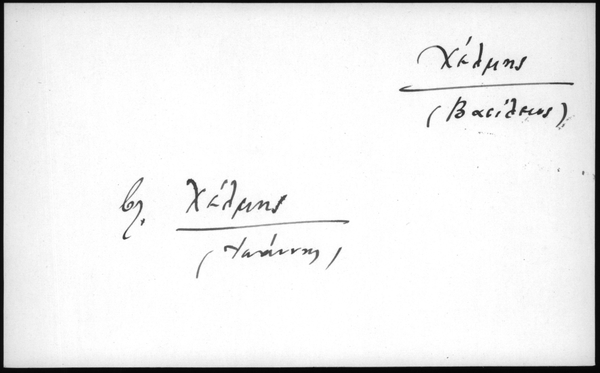 Χέλμης
(Βασίλειος)
βλ. Χέλμης
(Ιωάννης)